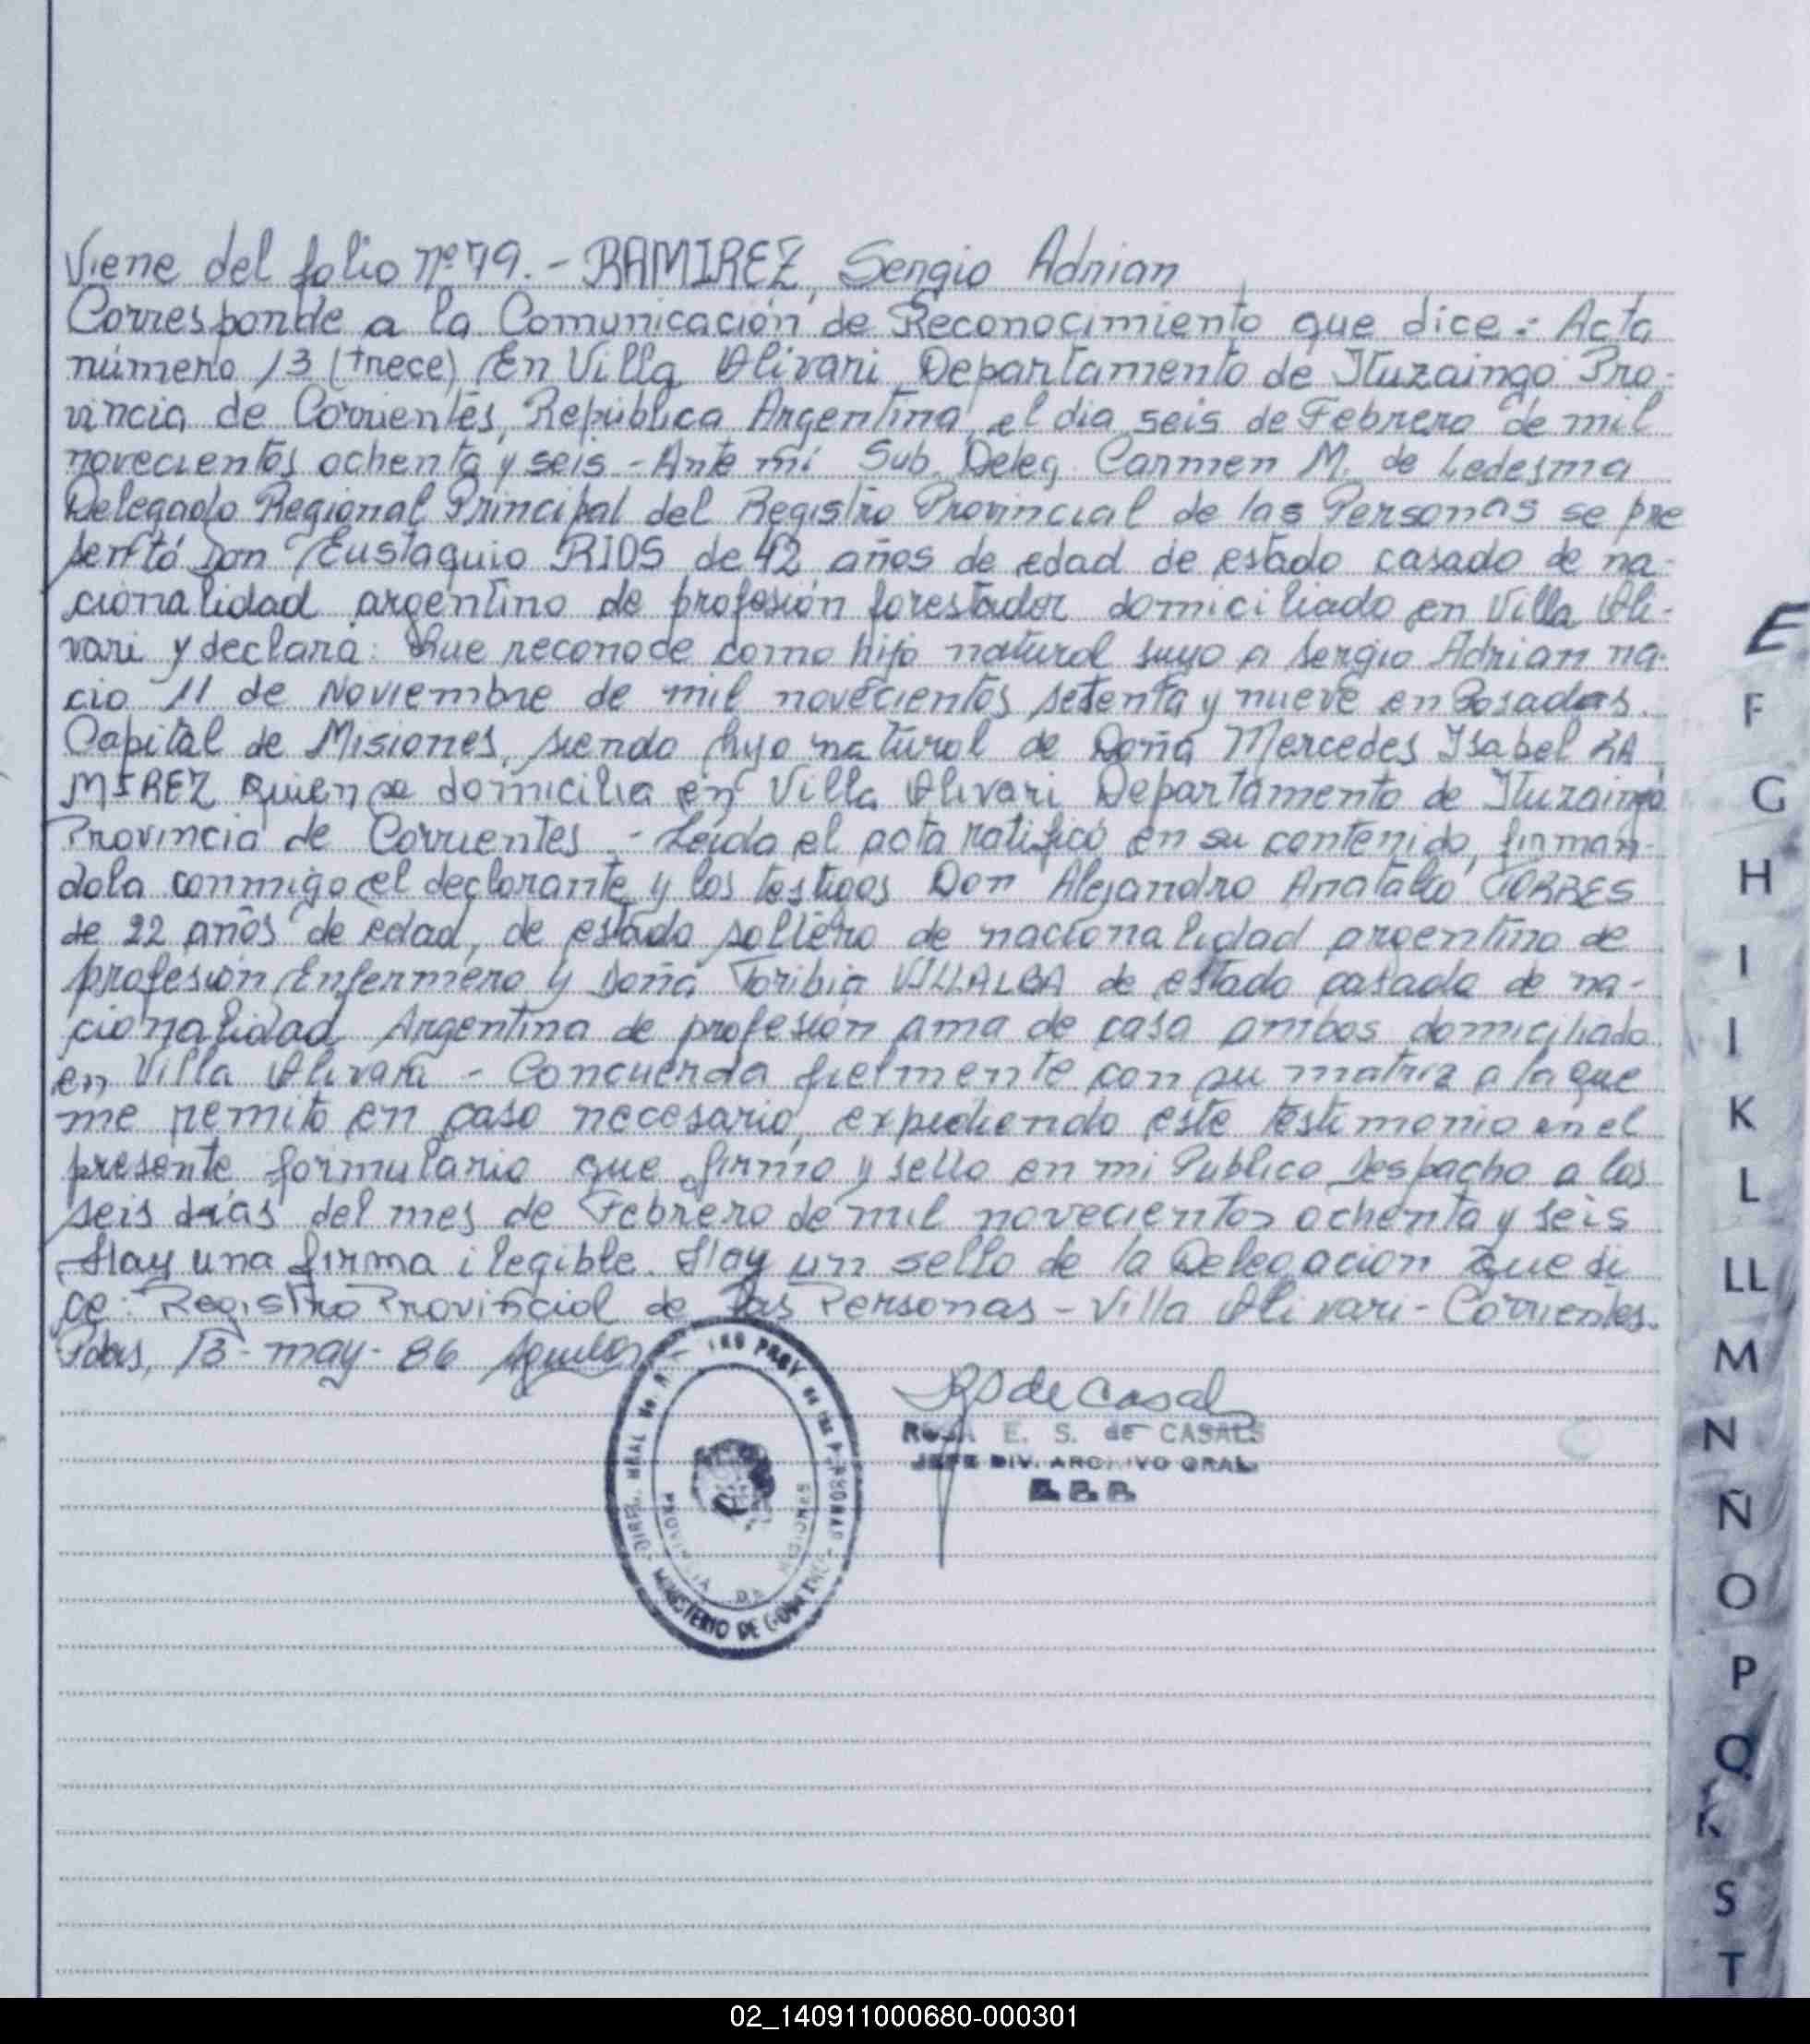 Viene del folio nº 79. - RAMIREZ, Sergio Adrian
Corresponde a la Comunicación de Reconocimiento que dice: Acta
número 13 (trece) En Villa Olivari Departamento de Ituzaingo Pro-
vincia de Corrientes, República Argentina, el dia seis de Febrero de mil
novecientos ochenta y seis - Ante mi Sub. Deleg. Carmen M. de Ledesma
Delegado Regional Principal del Registro Provincial de las Personas se pre
sentó Don Eustaquio RIOS de 42 años de edad de estado casado de na-
cionalidad argentino de profesión forestador domiciliado en Villa Oli-
vari y declara: Que reconoce como hijo natural suyo a Sergio Adrian na-
cio 11 de Noviembre de mil novecientos setenta y nueve en Posadas.
Capital de Misiones, siendo hijo natural de Doña Mercedes Isabel RA
MIREZ quien se domicilia en Villa Olivari Departamento de Ituzaingo
Provincia de Corrientes - Leida el acta ratificó en su contenido, firman-
dola conmigo el declarante y los testigos Don Alejandro Anatalio TORRES
de 22 años de edad, de estado soltero de nacionalidad argentino de
profesión Enfermero y Doña Toribia VILLALBA de estado casada de na-
cionalidad Argentina de profesión ama de casa ambos domiciliado
en Villa Olivari - Concuerda fielmente con su matriz a la que
me remito en caso necesario, expidiendo este testimonio en el
presente formulario que firmo y sello en mi Publico Despacho a los
seis días del mes de Febrero de mil novecientos ochenta y seis
Hay una firma ilegible. Hay un sello de la Delegacion que di
ce: Registro Provincial de las Personas - Villa Olivari - Corrientes.
Pdas, 13 - may - 86
RS de Casals
ROSA E. S. de CASALS
JEFE DIV. ARCHIVO GRAL.
PROV de las PERSONAS
MINISTERIO DE GOBIERNO
PROVINCIA DE MISIONES
E
F
G
H
I
I
K
L
LL
M
N
Ñ
O
P
Q
R
S
T
02_140911000680-000301